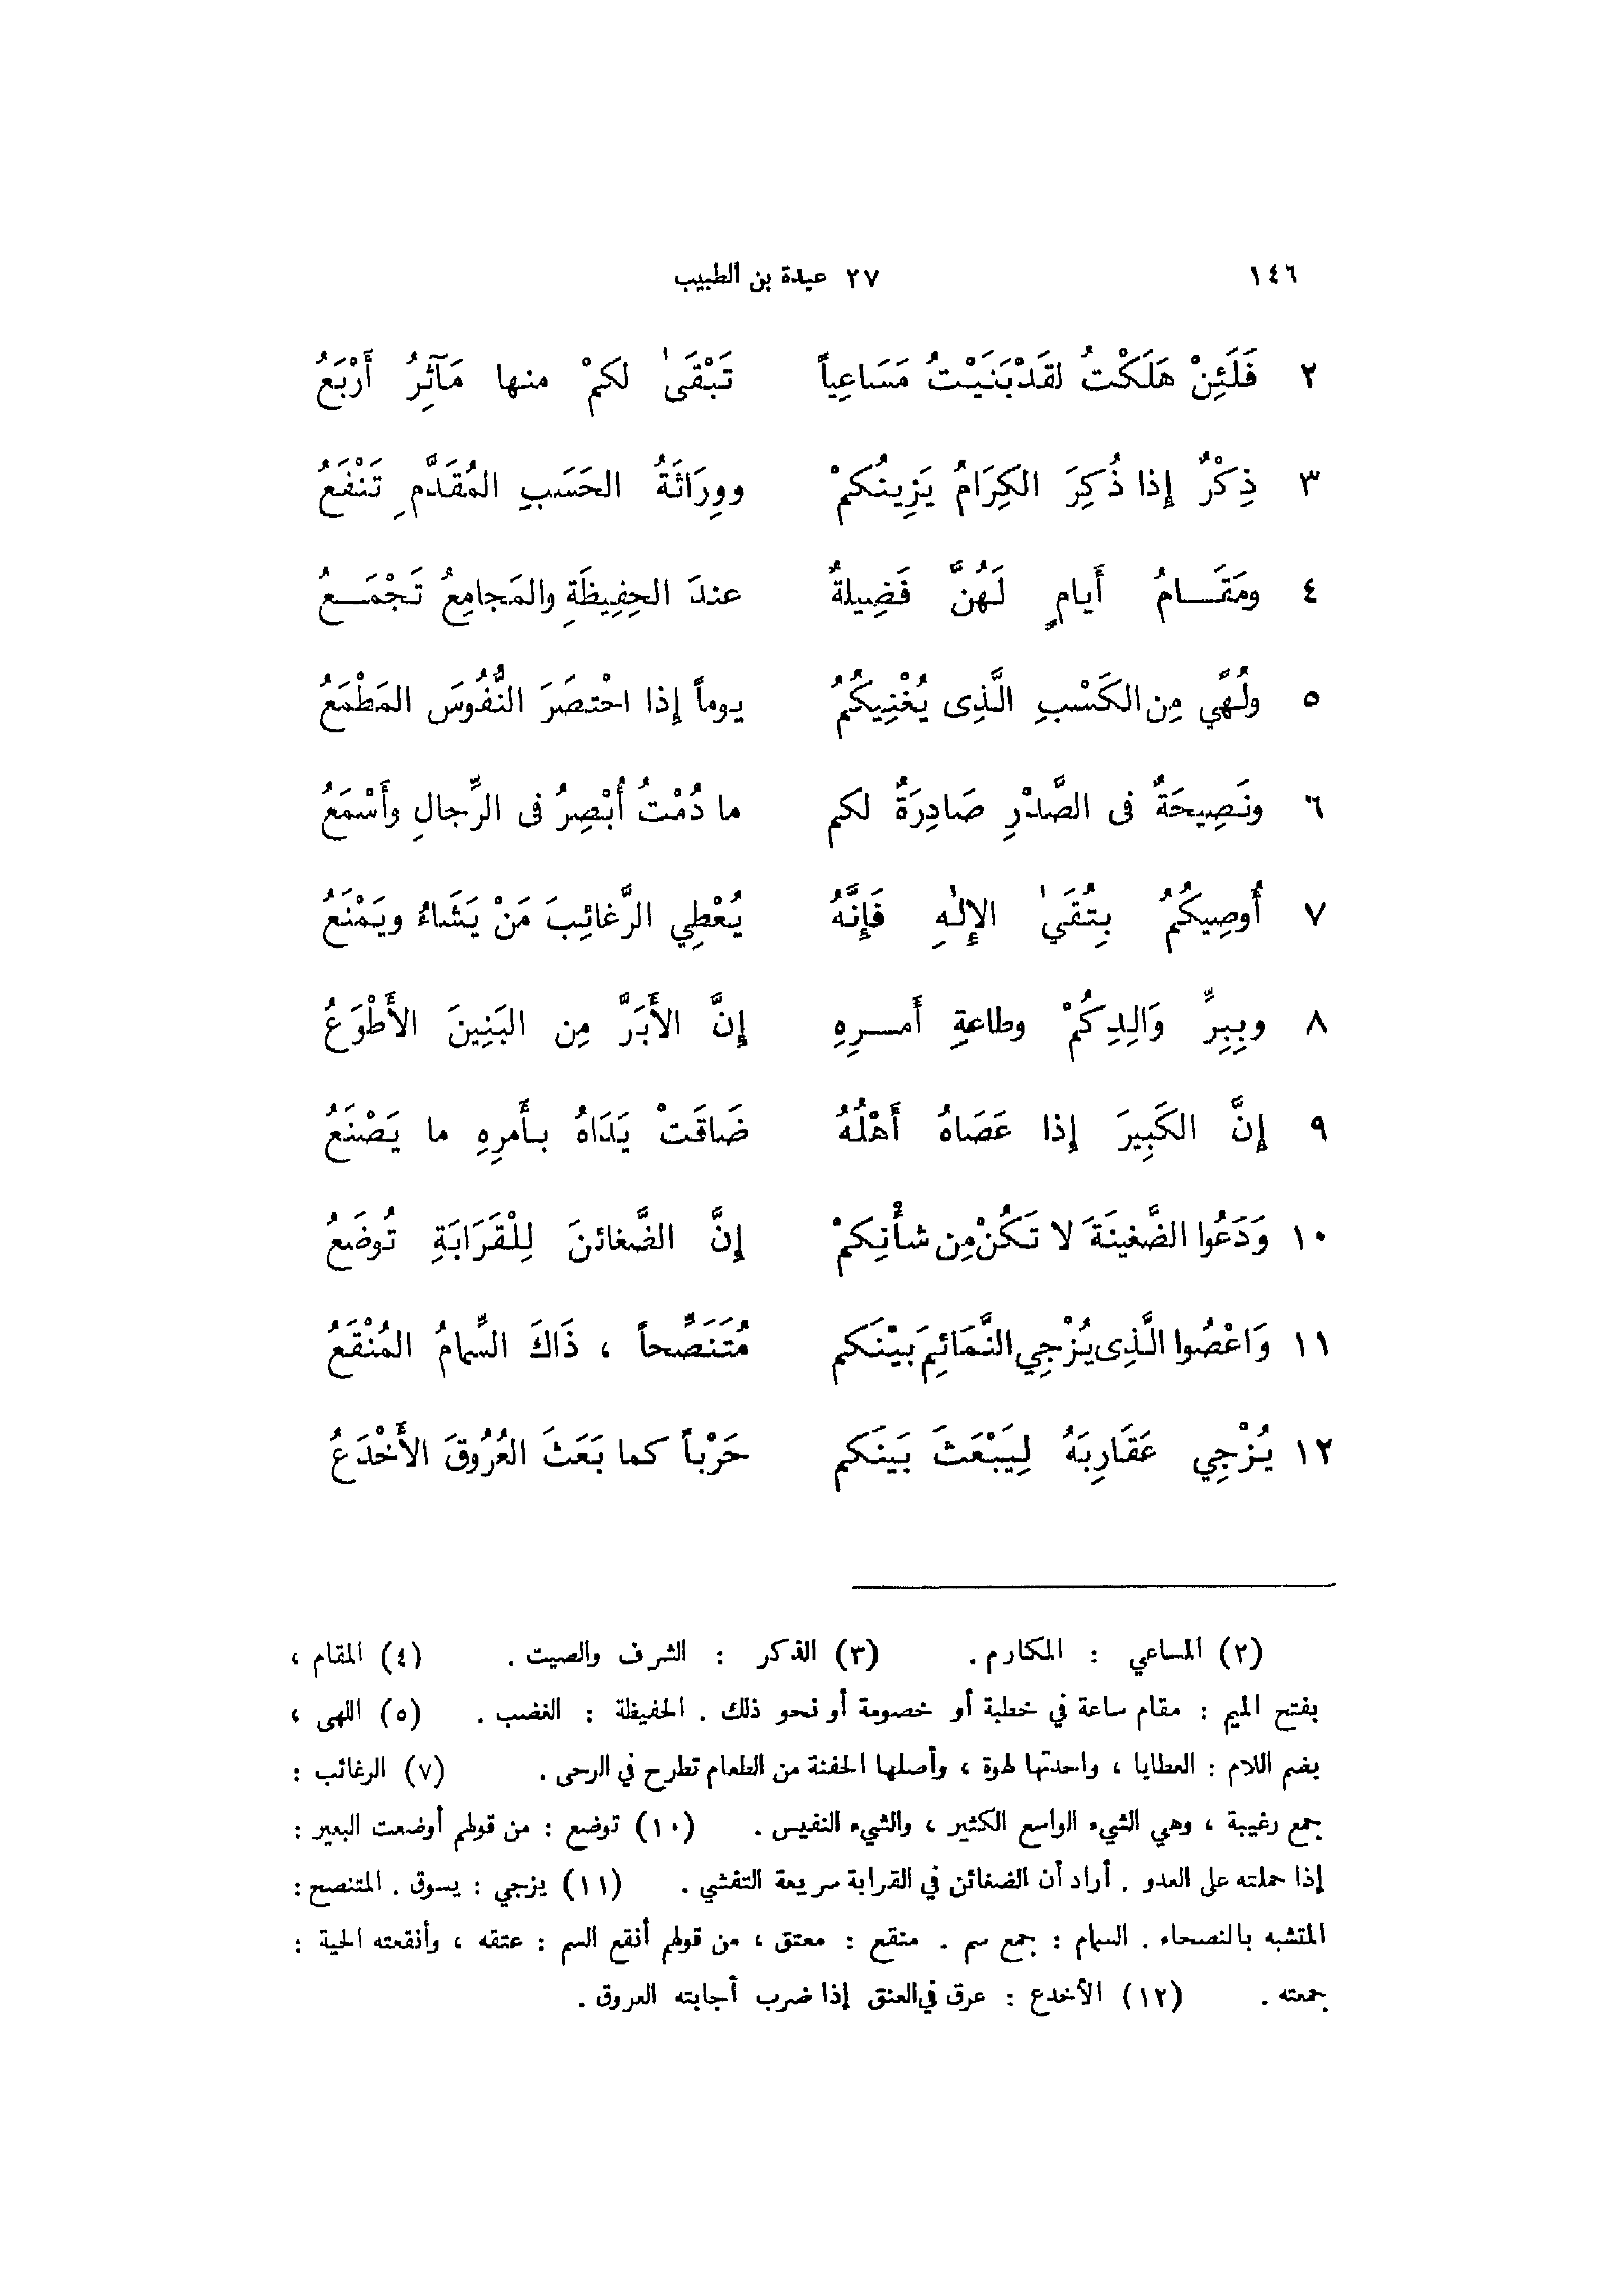 ١٤٦ ٢٧ عبدة بن الطبيب
٢ فَلَئِنْ هَلَكْتُ لقَدْ بَنَيْتُ مَسَاعِياً تَبْقَىٰ لكمْ منها مَآثِرُ أَرْبَعُ
٣ ذِكْرٌ إِذا ذُكِرَ الكِرَامُ يَزِينُكمْ ووِرَاثَةُ الحَسَبِ المُقَدَّمِ تَنْفَعُ
٤ ومَقَـــامُ أَيامٍ لَهُنَّ فَضِيلةٌ عندَ الحِفِيظَةِ والمَجامِعُ تَجْمَــعُ
٥ ولُهًي مِن الكَسْبِ الَّذِى يُغْنِيكُمُ يوماً إِذا احْتصَرَ النُّفُوسَ المَطْمَعُ
٦ ونَصِيحَةٌ فى الصَّدْرِ صَادِرَةٌ لكم ما دُمْتُ أُبْصِرُ فى الرِّجالِ وأَسْمَعُ
٧ أُوصِيكُمُ بِتُقَىٰ الإِلٰهِ فَإِنَّهُ يُعْطِي الرَّغائِبَ مَنْ يَشَاءُ ويَمْنَعُ
٨ وبِبِرِّ وَالِدِكُمْ وطاعةِ أَمــرِهِ إِنَّ الأَبَرَّ مِن البَنِينَ الأَطْوَعُ
٩ إِنَّ الكَبِيرَ إِذا عَصَاهُ أَهْلُهُ ضَاقَتْ يَدَاهُ بأَمرِهِ ما يَصْنَعُ
١٠ وَدَعُوا الضَّغينَةَ لا تَكُنْ مِن شأْنِكمْ إِنَّ الضَّغائنَ لِلْقَرَابَةِ تُوضَعُ
١١ وَاعْصُوا الَّذِى يُزْجِي النَّمَائِمَ بَيْنَكم مُتَنَصِّحاً ، ذَاكَ السِّمامُ المُنْقَعُ
١٢ يُزْجِي عَقَارِبَهُ لِيَبْعَثَ بَينَكم حَرْباً كما بَعَثَ العُرُوقَ الأَخْدَعُ
(٢) المساعي : المكارم . (٣) الذكر : الشرف والصيت . (٤) المقام ،
بفتح الميم : مقام ساعة في خطبة أو خصومة أو نحو ذلك . الحفيظة : الغضب . (٥) اللهى ،
بضم اللام : العطايا ، واحدتها لهوة ، وأصلها الحفنة من الطعام تطرح في الرحى . (٧) الرغائب :
جمع رغيبة ، وهي الشيء الواسع الكثير ، والشيء النفيس . (١٠) توضع : من قولهم أوضعت البعير :
إذا حملته على العدو . أراد أن الضغائن في القرابة سريعة التفشي . (١١) يزجي : يسوق . المتنصح :
المتشبه بالنصحاء . السمام : جمع سم . منقع : معتق ، من قولهم أنقع السم : عتقه ، وأنقعته الحية :
جمعته . (١٢) الأخدع : عرق في العنق إذا ضرب أجابته العروق .